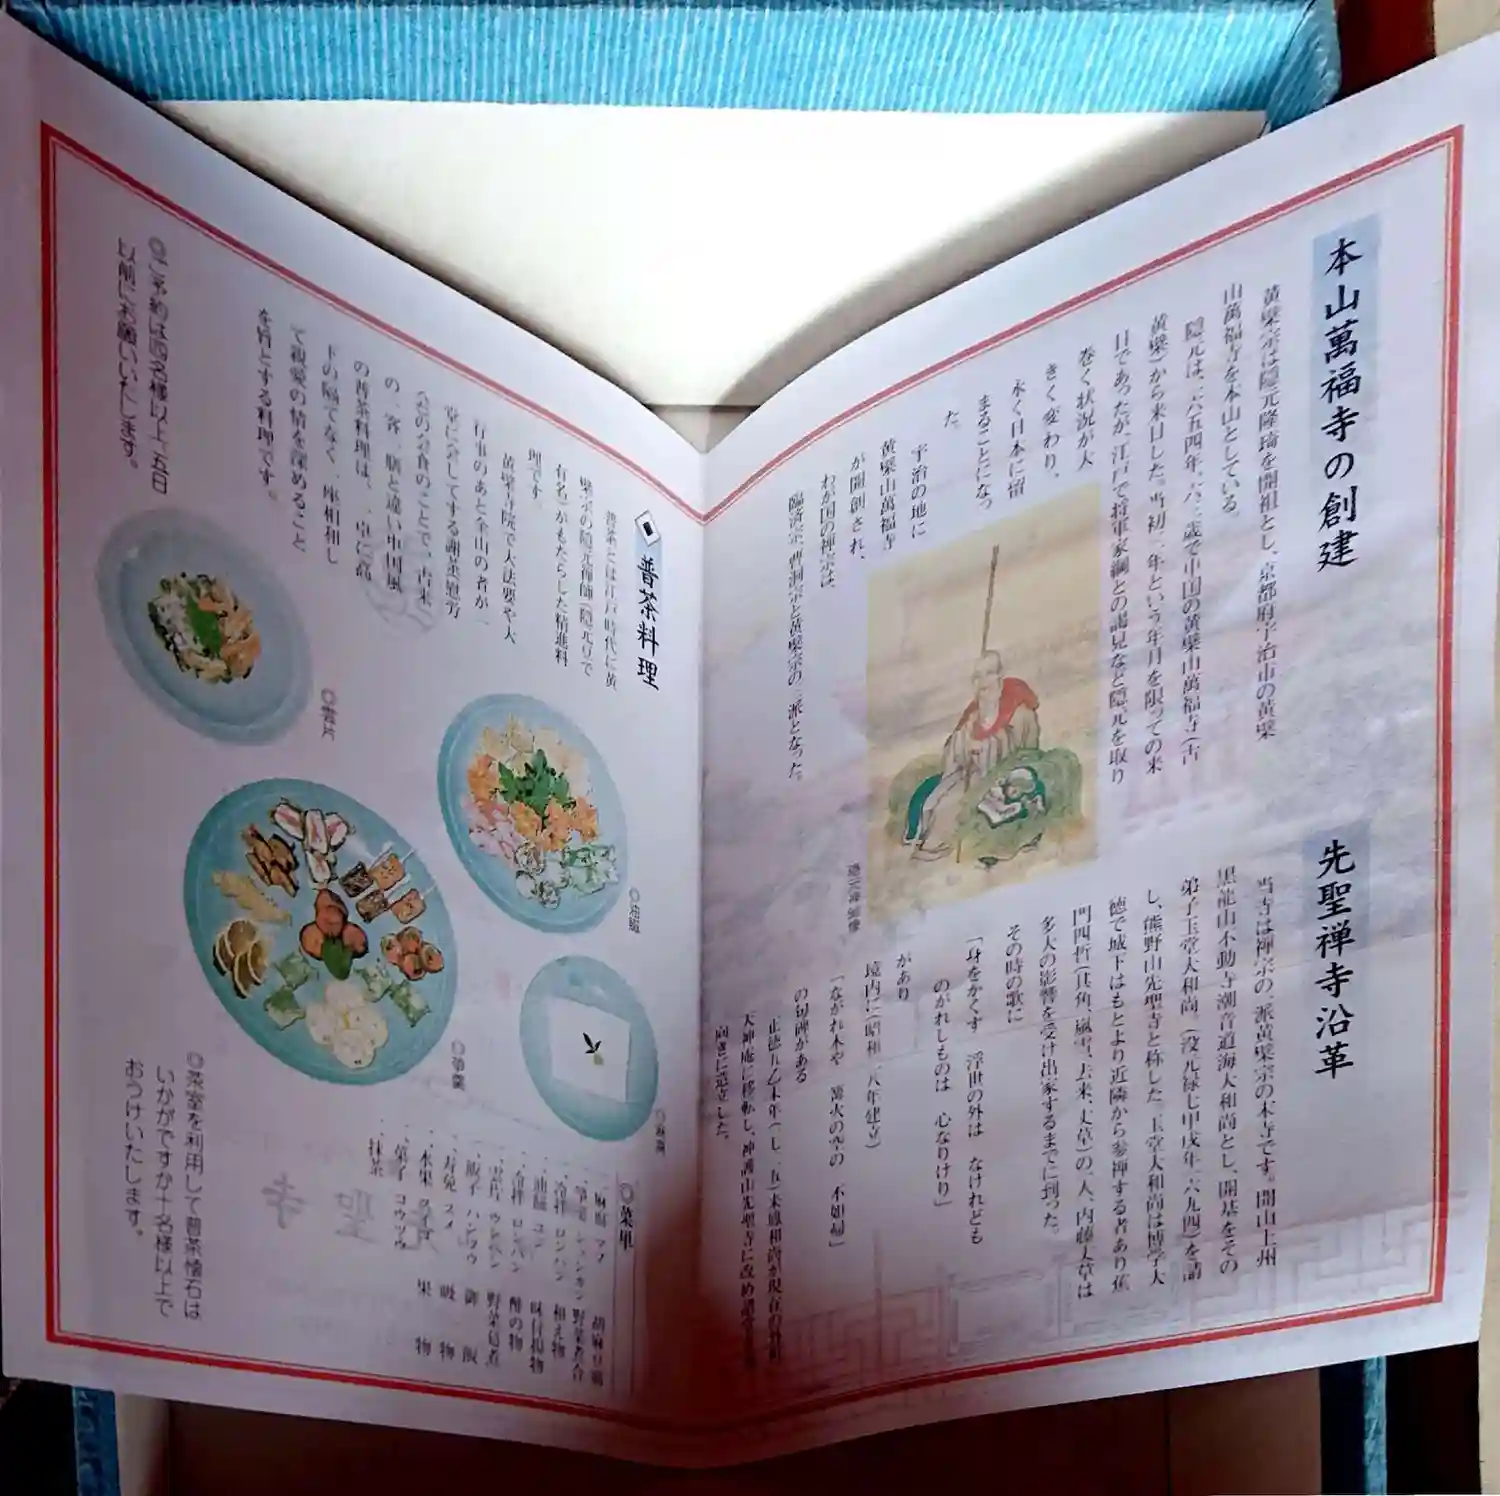 本山萬福寺の創建
黄檗宗は隠元隆琦を開祖とし、京都府宇治市の黄檗
山萬福寺を本山としている。
隠元は、一六五四年、六三歳で中国の黄檗山萬福寺(古
黄檗)から来日した。当初三年という年月を限っての来
日であったが、江戸で将軍家綱との謁見など隠元を取り
巻く状況が大
きく変わり、
永く日本に留
まることになっ
た。
宇治の地に
黄檗山萬福寺
が開創され、
わが国の禅宗は、
臨済宗、曹洞宗と黄檗宗の三派となった。
隠元禅師像
先聖禅寺沿革
当寺は禅宗の一派黄檗宗の末寺です。開山上州
黒龍山不動寺潮音道海大和尚とし、開基をその
弟子玉堂大和尚。(没元禄七甲戌年一六九四)を請
し、熊野山先聖寺と称した。玉堂大和尚は博学大
徳で城下はもとより近隣から参禅する者あり蕉
門四哲(其角、嵐雪、去来、丈草)の一人、内藤丈草は
多大の影響を受け出家するまでに到った。
その時の歌に
「身をかくす 浮世の外は なけれども
のがれしものは 心なりけり」
があり
境内に(昭和二八年建立)
「ながれ木や 篝火の空の 不如帰」
の句碑がある
正徳五乙未年(一七一五)末
天神庵に移転し、神護山先聖寺に改め
向きに造立した。
普茶料理
普茶とは江戸時代に黄
檗宗の隠元禅師(隠元豆で
有名)がもたらした精進料
理です。
黄檗寺院で大法要や大
行事のあと全山の者が一
堂に会してする謝茶慰労
会の会食のことで、古来
の一客一膳と違い中国風
の普茶料理は、一卓に高
下の隔てなく、座相和し
て親愛の情を深めること
を旨とする料理です。
◎ご予約は四名様以上、五日
以前にお願いいたします。
◎雲片
◎油𩝐
◎笋羹
◎麻腐
◎菜単
一、麻腐 マフ 胡麻豆腐
一、笋羹 シュンカン 野菜煮合
一、冷拌 ロンパン 和え物
一、油𩝐 ユジ 味付揚物
一、冷拌 ロンパン 酢の物
一、雲片 ウンペン 野菜葛煮
一、飯子 ハンツウ 御飯
一、寿免 スメ 吸物
一、水果 スイゴ 果物
一、菓子 コウツウ
一、抹茶
◎茶室を利用して普茶懐石は
いかがですか十名様以上で
おうけいたします。